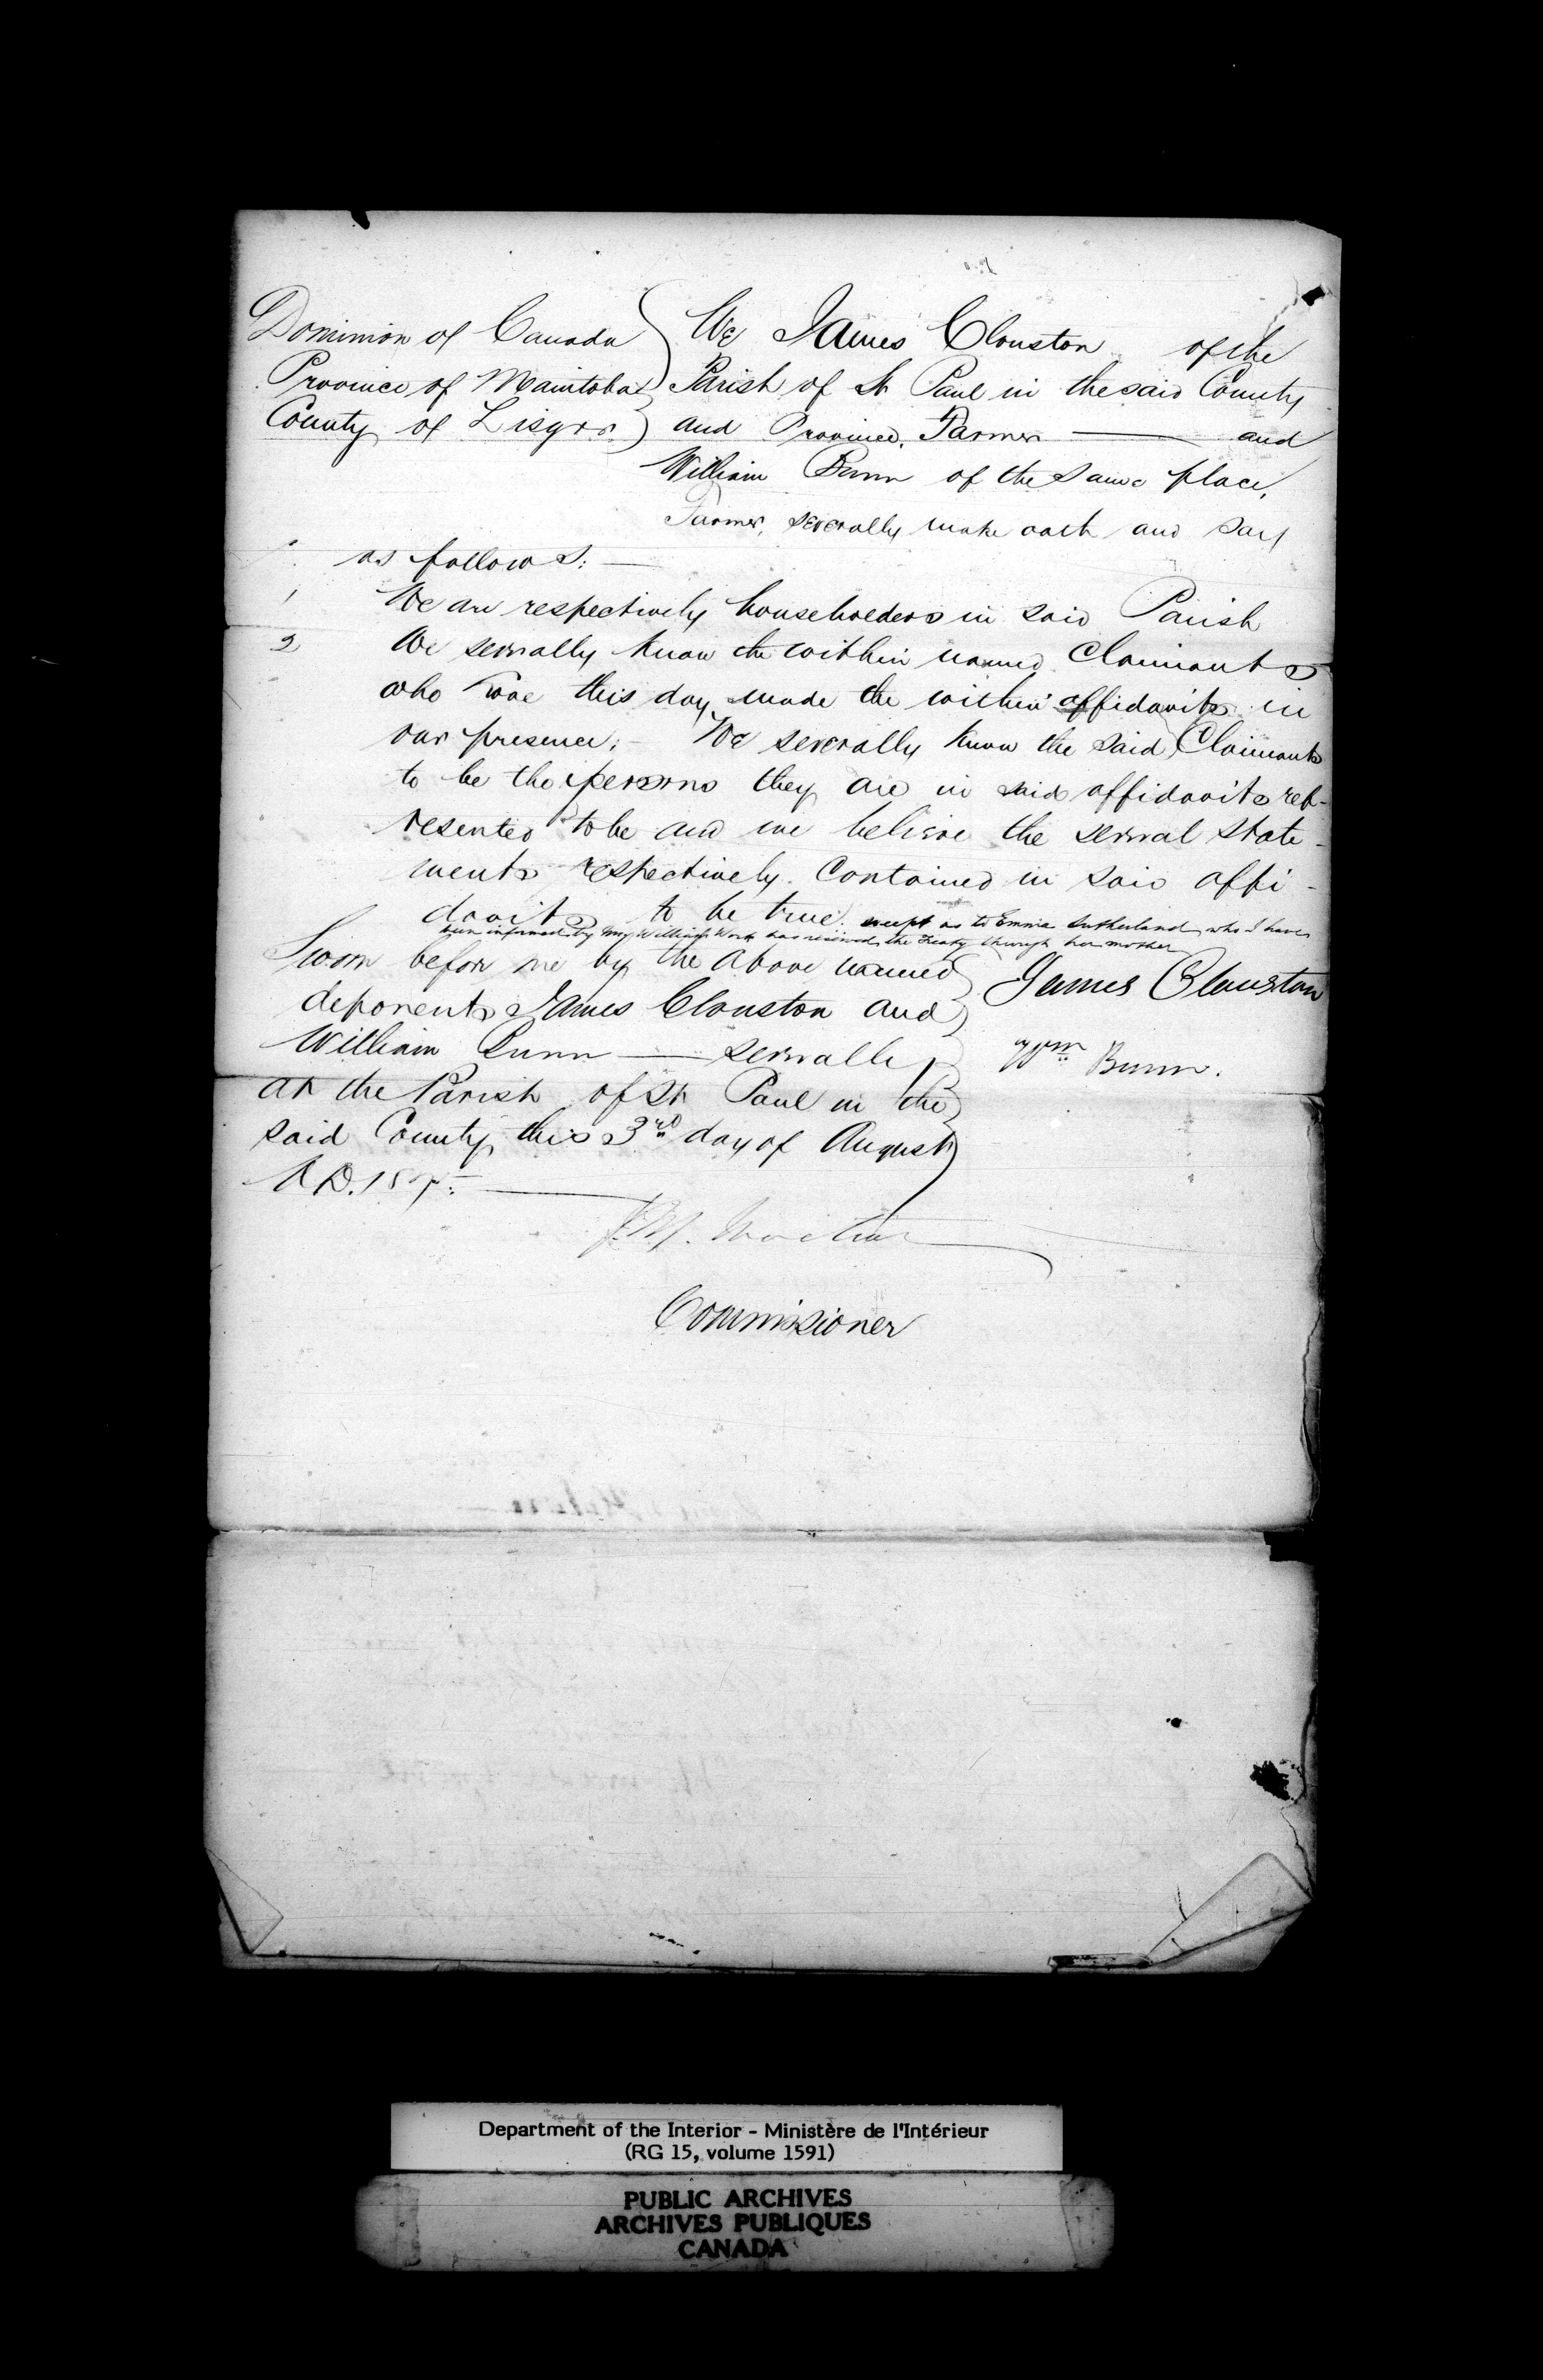 Dominion of Canada
Province of Manitoba
County of Lisgar
We James Clouston of the
Parish of St Paul in the said County
and Province, Farmer —— and
William Bunn of the same place,
Farmer, severally make oath and say
as follows: —
1 We are respectively householders in said Parish
2 We severally know the within named Claimants
who have this day made the within affidavits in
our presence: — We severally know the said Claimants
to be the persons they are in said affidavits rep-
resented to be and we believe the several state-
ments respectively contained in said affi-
davits to be true. except as to Emma Sutherland who I have
been informed by William Work has received the Treaty through her mother
Sworn before me by the above named
deponents James Clouston and
William Bunn —— severally
at the Parish of St Paul in the
said County this 3rd day of August
A.D. —
James Clouston
Wm Bunn.
Commissioner
Department of the Interior - Ministère de l'Intérieur
(RG 15, volume 1591)
PUBLIC ARCHIVES
ARCHIVES PUBLIQUES
CANADA